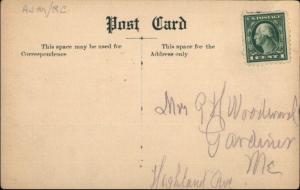 Post Card
This space may be used for
Correspondence
This space for the
Address only
U.S. POSTAGE
1 CENT 1
Mrs G H Woodward
Gardiner
Me
Highland Ave